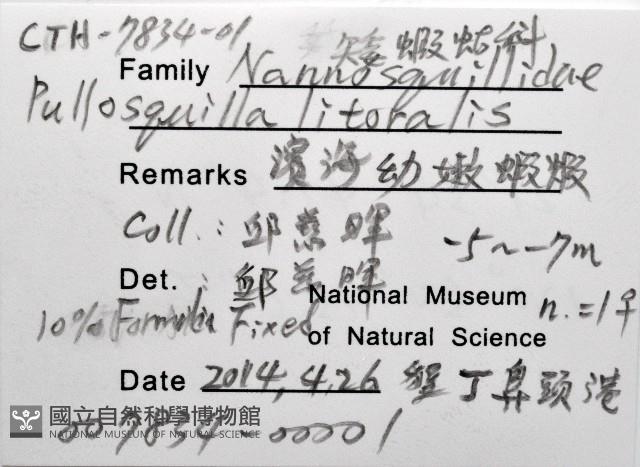 CTH-7834-01 矮蝦蛄科
Family Nannosquillidae
Pullosquilla litoralis
Remarks 濱海幼嫩蝦蝦
Coll.: 邱慈暉 -5~-7m
Det.: 邱慈暉
National Museum of Natural Science
n.=1♀
10% Formalin Fixed
Date 2014,4,26 墾丁鼻頭港
國立自然科學博物館
NATIONAL MUSEUM OF NATURAL SCIENCE
007834-00001